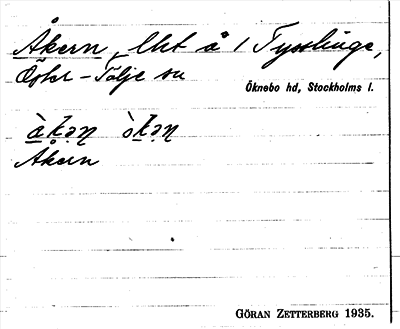 Åkern, lht å / Tysslinge,
Öster-Tälje sn
Öknebo hd, Stockholms l.
àkəɳ òkəɳ
Åkern
GÖRAN ZETTERBERG 1935.